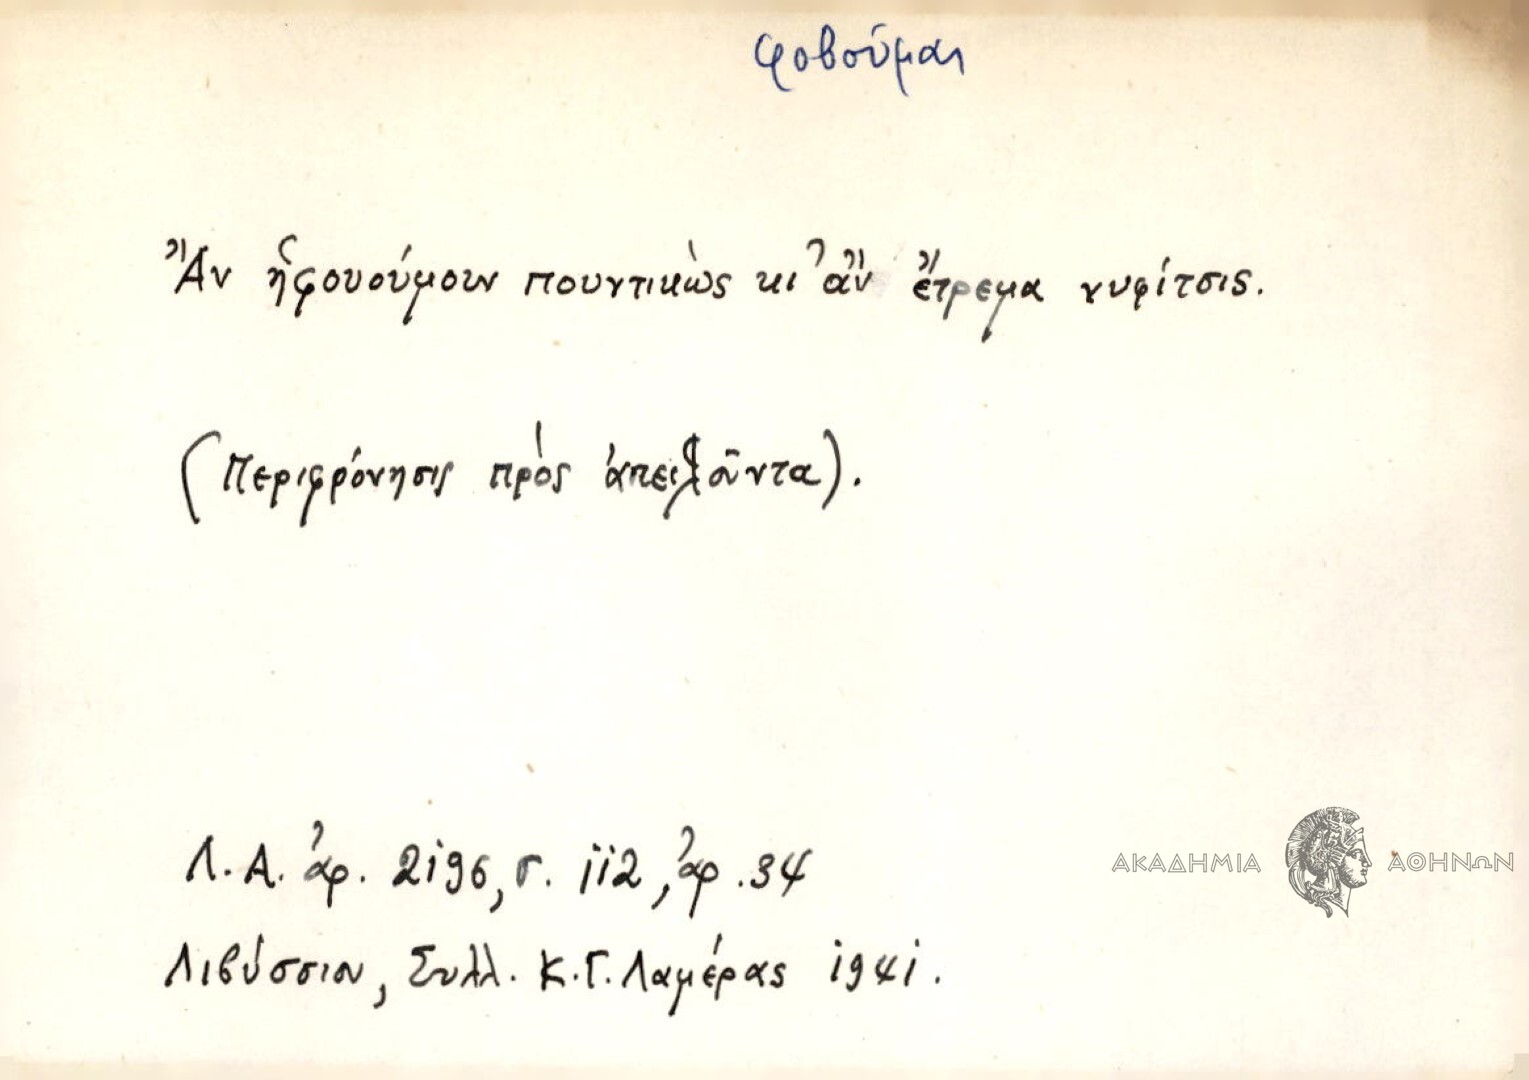 φοβούμαι
Ἂν ἡφουούμουν πουντικὼς κι ἂν ἔτρεμα νυφίτσις.
(Περιφρόνησις πρὸς ἀπειλοῦντα).
Λ.Α. ἀρ. 2196, σ. 112, ἀρ. 34
Λιβύσσιον, Συλλ. Κ.Γ. Λαμέρας 1941.
ΑΚΑΔΗΜΙΑ ΑΘΗΝΩΝ